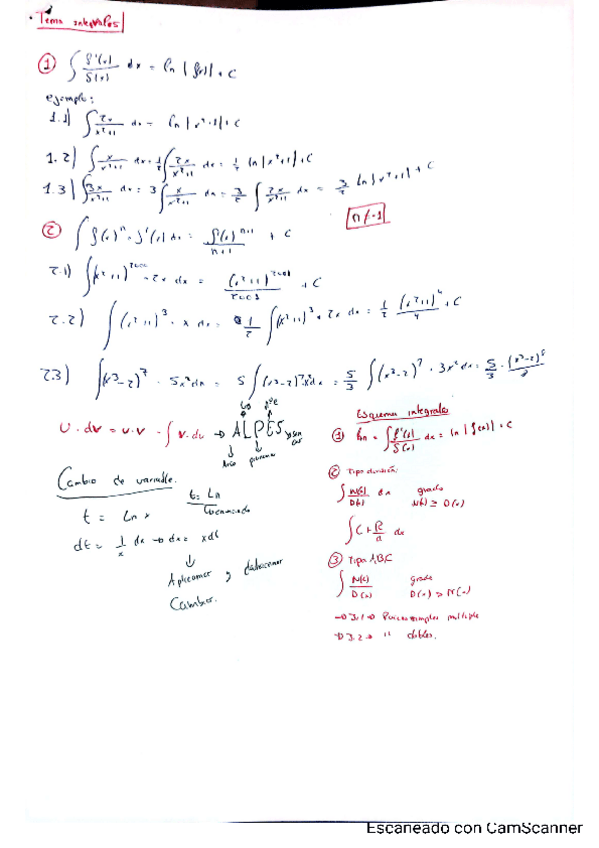 Tema integrales
① ∫ f'(x)/f(x) dx = ln |f(x)| + C
ejemplo:
1.1) ∫ 2x/x²+1 dx = ln |x²+1| + C
1.2) ∫ x/x²+1 dx = 1/2 ∫ 2x/x²+1 dx = 1/2 ln |x²+1| + C
1.3) ∫ 3x/x²+1 dx = 3 ∫ x/x²+1 dx = 3/2 ∫ 2x/x²+1 dx = 3/2 ln |x²+1| + C
n ≠ -1
② ∫ f(x)ⁿ · f'(x) dx = f(x)ⁿ⁺¹/n+1 + C
2.1) ∫ (x²+1) · 2x dx = (x²+1) + C
2.2) ∫ (x²+1)³ · x dx = 1/2 ∫ (x²+1)³ · 2x dx = 1/2 (x²+1)⁴/4 + C
2.3) ∫ (x³-2)⁷ · 5x² dx = 5 ∫ (x³-2)⁷ x² dx = 5/3 ∫ (x³-2)⁷ · 3x² dx = 5/3 · (x³-2)⁸/8
U · dv = u · v - ∫ v · du → ALPES
Arco
sen
cos
Cambio de variable.
t = Ln
t = Ln x
dt = 1/x dx → dx = x dt
Aplicamos y
Cambio.
Esquema integrales
① Ln = ∫ f'(x)/f(x) dx = ln |f(x)| + C
② Tipo división
∫ N(x)/D(x) dx grado N(x) ≥ D(x)
∫ C + R/d dx
③ Tipo A,B,C
∫ N(x)/D(x) grado D(x) > N(x)
→ 3.1 → simples multiple
→ 3.2 → " dobles.
Escaneado con CamScanner